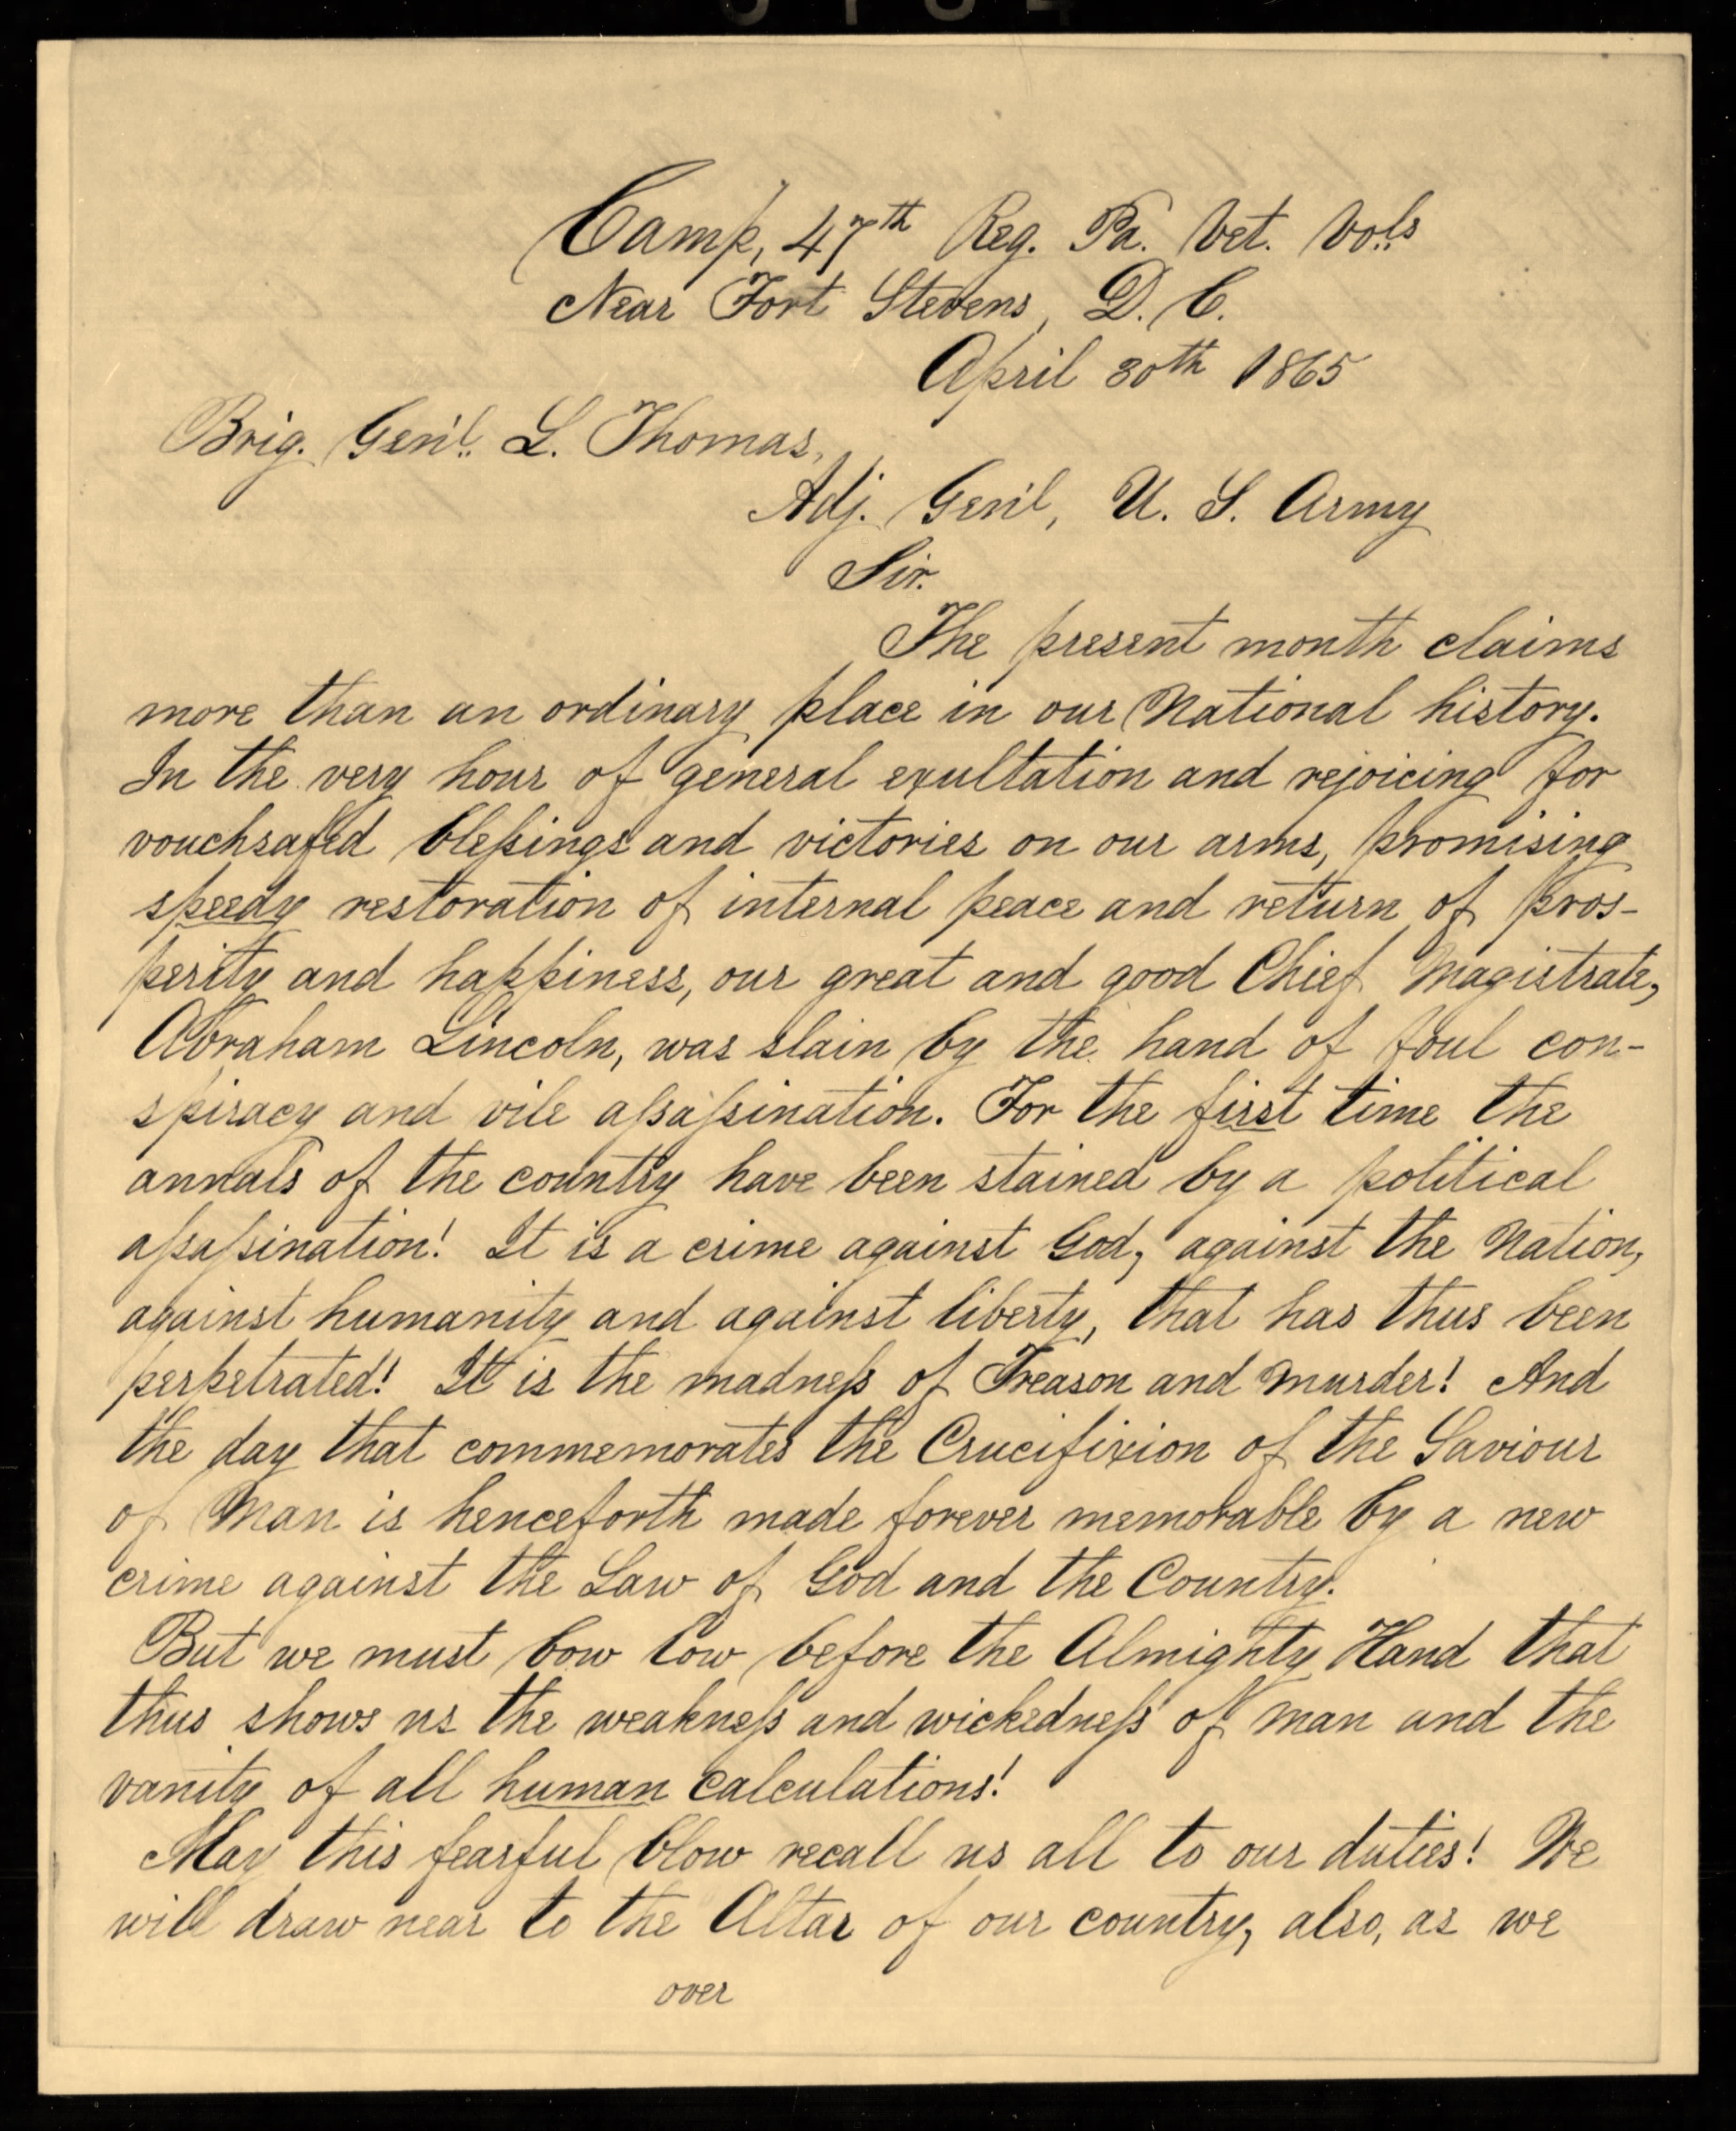 Camp, 47th Reg. Pa. Vet. Vols
Near Fort Stevens, D. C.
April 30th 1865
Brig. Gen'l. L. Thomas,
Adj. Gen'l, U. S. Army
Sir.
The present month claims
more than an ordinary place in our National history.
In the very hour of general exultation and rejoicing for
vouchsafed bleſsings and victories on our arms, promising
speedy restoration of internal peace and return of pros-
perity and happiness, our great and good Chief Magistrate,
Abraham Lincoln, was slain by the hand of foul con-
spiracy and vile aſsaſsination. For the first time the
annals of the country have been stained by a political
aſsaſsination! It is a crime against God, against the Nation,
against humanity and against liberty, that has thus been
perpetrated! It is the madneſs of Treason and murder! And
the day that commemorates the Crucifixion of the Saviour
of Man is henceforth made forever memorable by a new
crime against the Law of God and the Country.
But we must bow low before the Almighty Hand that
thus shows us the weakneſs and wickedneſs of man and the
vanity of all human calculations!
May this fearful blow recall us all to our duties! We
will draw near to the Altar of our country, also, as we
over